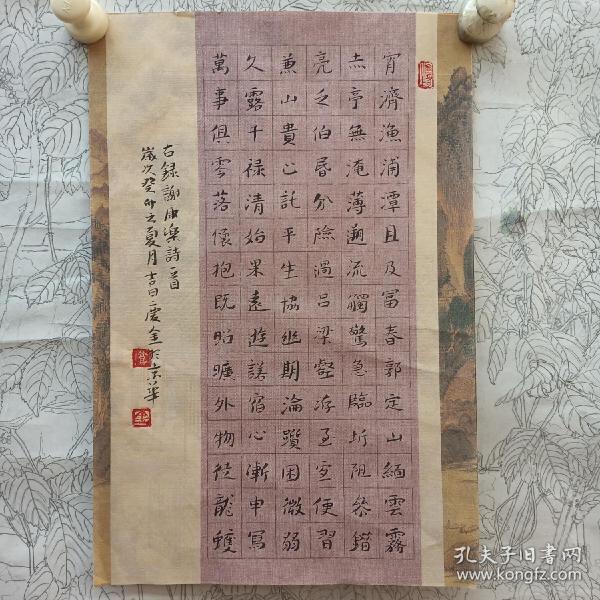 宵濟漁浦潭且及富春郭定山緬雲霧
赤亭無淹薄遡流觸驚急臨圻阻參錯
亮乏伯昏分險過呂梁壑洊至宜便習
兼山貴止託平生協幽期淪躓困微弱
久露千祿清始果遠遊諾宿心漸申寫
萬事俱零落懷抱既昭曠外物徒龍蠖
右録謝康樂詩一首
歲次癸卯之夏月吉日慶金於京華
孔夫子旧书网
www.kongfz.com